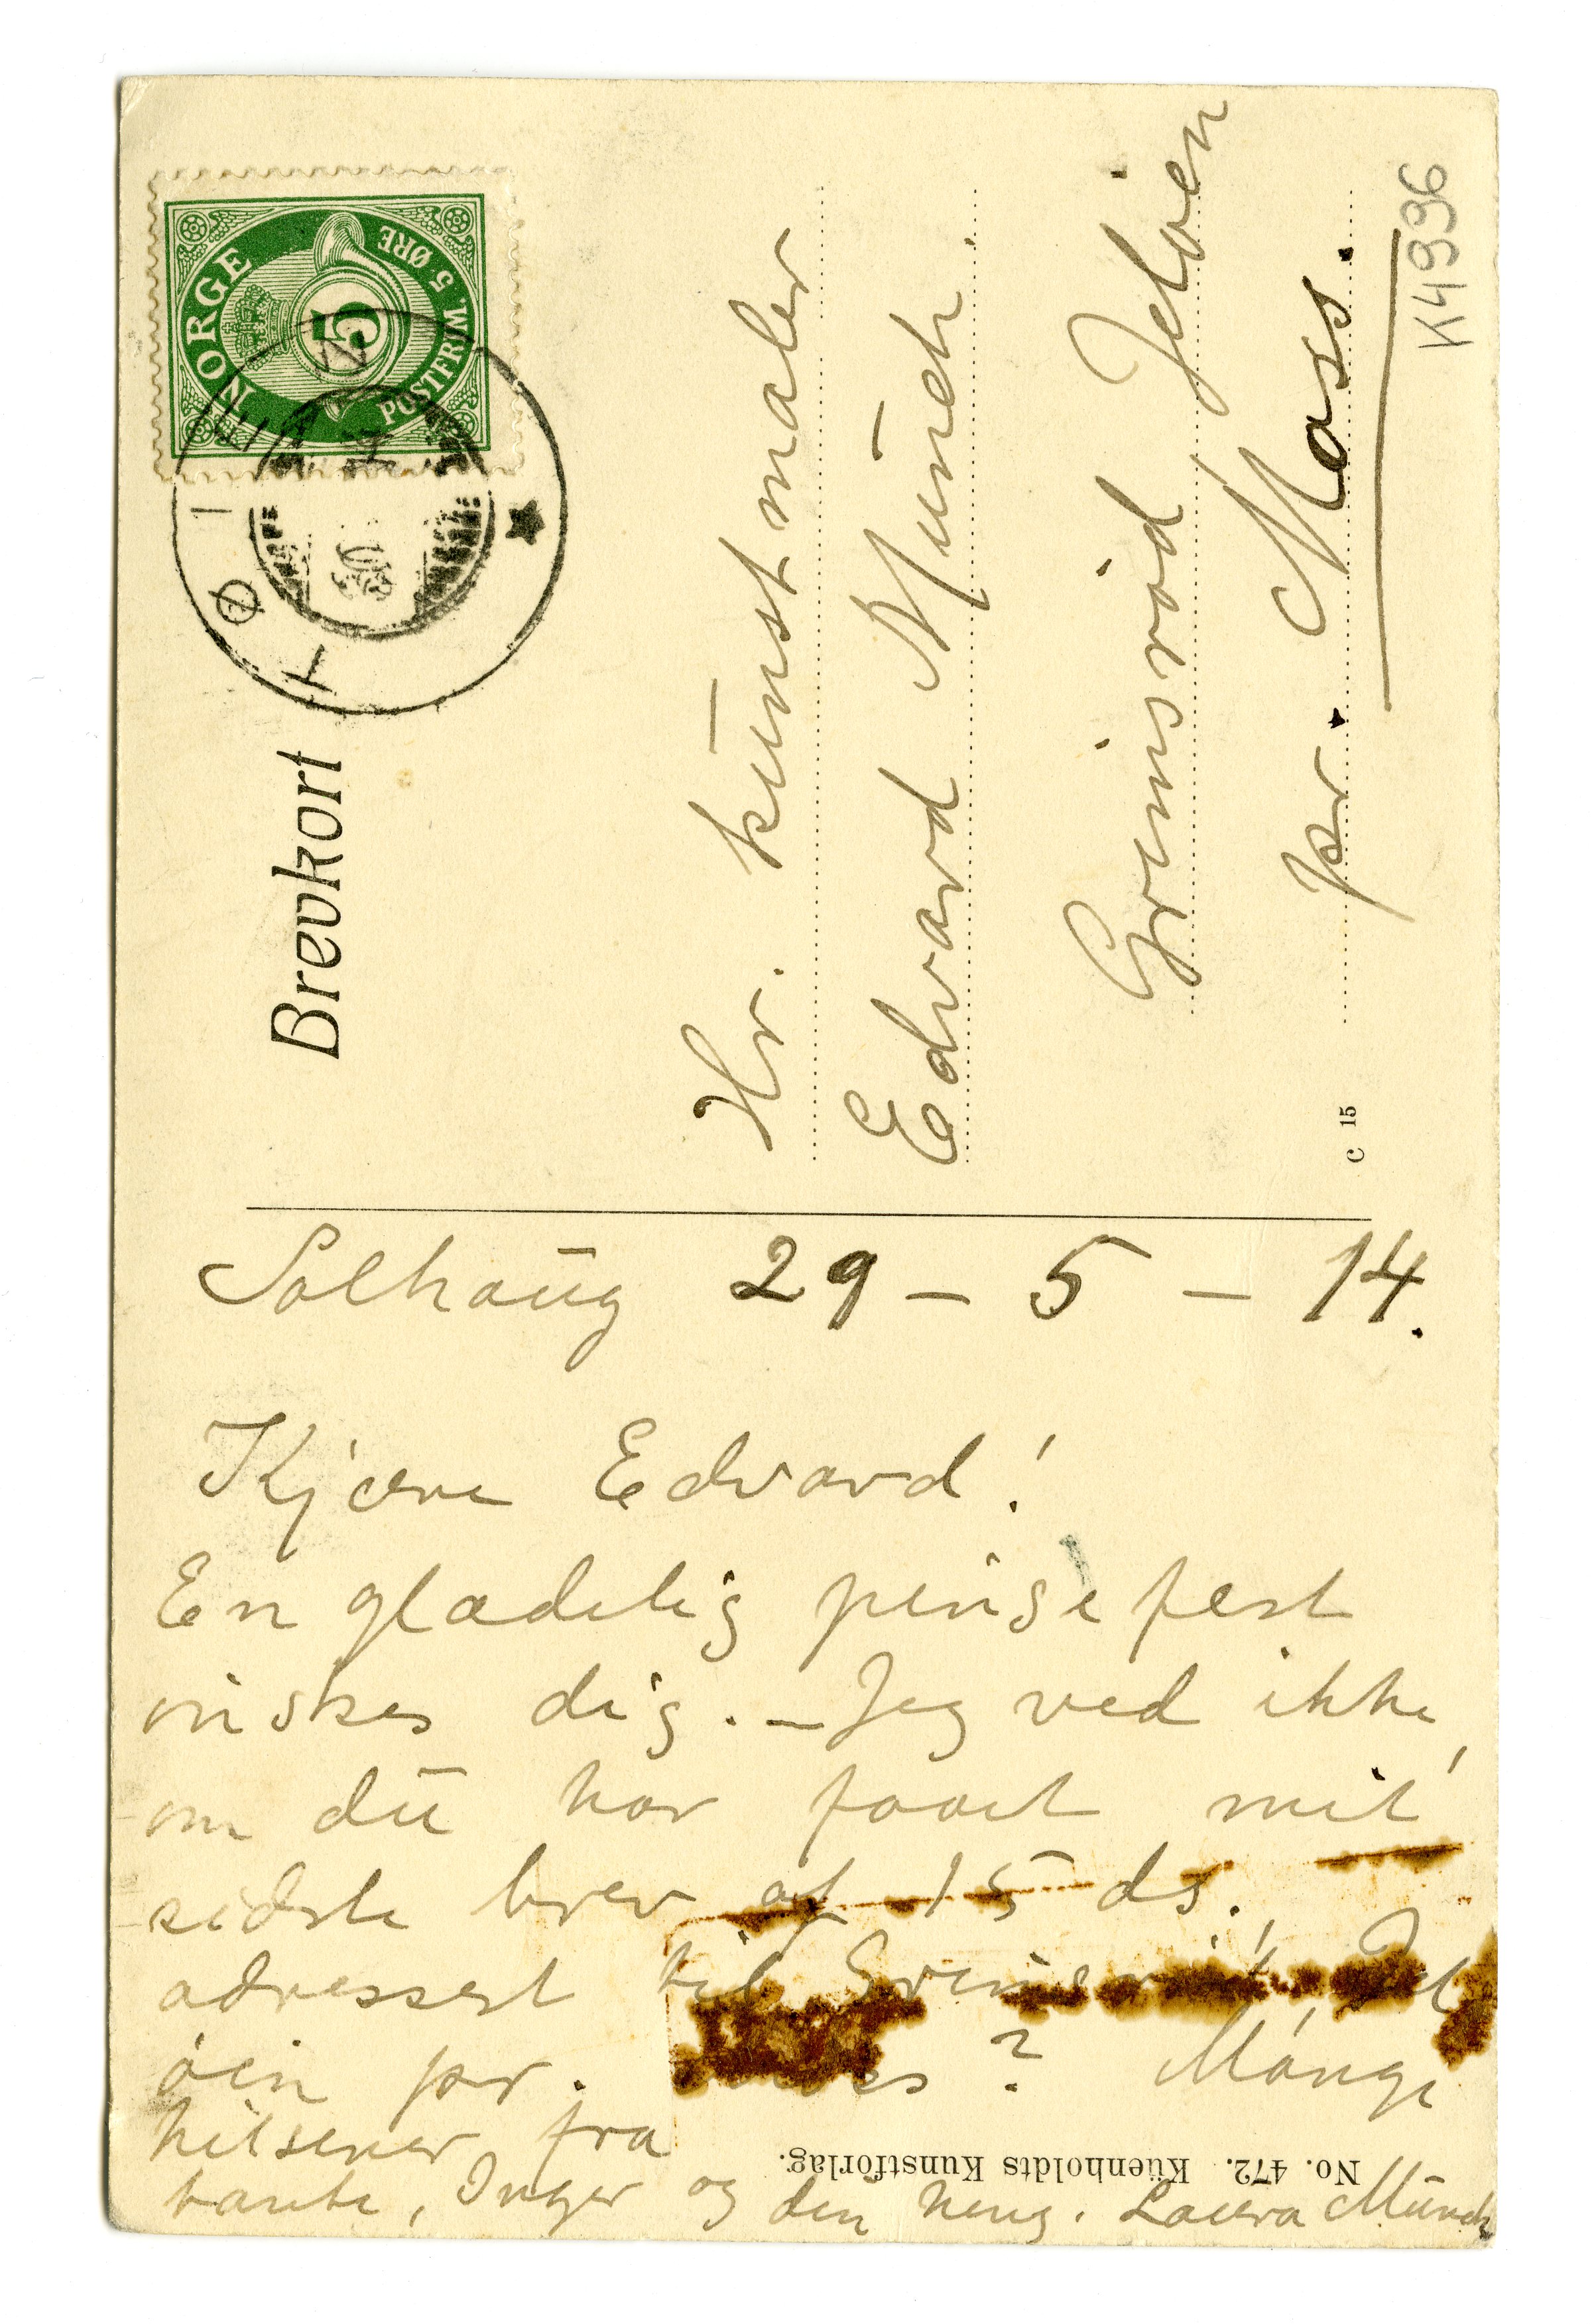 Brevkort
NORGE
5
POSTFRIM. 5 ØRE
Hr. kunstmaler
Edvard Munch.
Grimsrød, Jeløen
pr. Moss.
K4996
c 15
Solhaug 29 – 5 – 14.
Kjære Edvard!
En glædelig pinsefest
ønskes dig. – Jeg ved ikke,
om du har faaet mit
sidste brev af 15 ds.,
adressert til Grimsrød, Jel
øen pr. Moss? Mange
hilsener fra
tante, Inger og din heng. Laura Munch
No. 472. Küenholdts Kunstforlag.